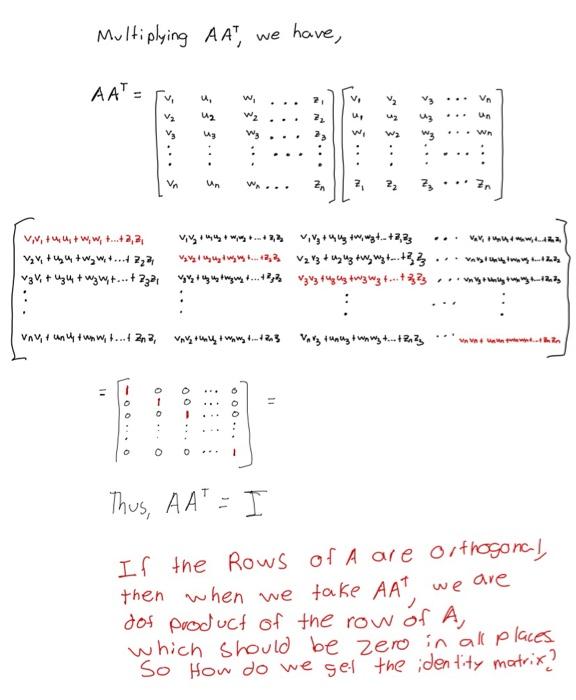 Multiplying AAᵀ, we have,
AAᵀ = [ v₁ u₁ w₁ ... z₁ ] [ v₁ v₂ v₃ ... vₙ ]
[ v₂ u₂ w₂ ... z₂ ] [ u₁ u₂ u₃ ... uₙ ]
[ v₃ u₃ w₃ ... z₃ ] [ w₁ w₂ w₃ ... wₙ ]
[ ⋮ ⋮ ⋮ ... ⋮ ] [ ⋮ ⋮ ⋮ ... ⋮ ]
[ vₙ uₙ wₙ ... zₙ ] [ z₁ z₂ z₃ ... zₙ ]
v₁v₁ + u₁u₁ + w₁w₁ + ... + z₁z₁ v₁v₂ + u₁u₂ + w₁w₂ + ... + z₁z₂ v₁v₃ + u₁u₃ + w₁w₃ + ... + z₁z₃ ...
v₂v₁ + u₂u₁ + w₂w₁ + ... + z₂z₁ v₂v₂ + u₂u₂ + w₂w₂ + ... + z₂z₂ v₂v₃ + u₂u₃ + w₂w₃ + ... + z₂z₃ ...
v₃v₁ + u₃u₁ + w₃w₁ + ... + z₃z₁ v₃v₂ + u₃u₂ + w₃w₂ + ... + z₃z₂ v₃v₃ + u₃u₃ + w₃w₃ + ... + z₃z₃ ...
⋮ ⋮ ⋮ ⋮
vₙv₁ + uₙu₁ + wₙw₁ + ... + zₙz₁ vₙv₂ + uₙu₂ + wₙw₂ + ... + zₙ vₙv₃ + uₙu₃ + wₙw₃ + ... + zₙz₃ ... vₙvₙ + uₙuₙ + wₙwₙ + ... + zₙzₙ
= [ 1 0 0 ... 0 ] =
[ 0 1 0 ... 0 ]
[ 0 0 1 ... 0 ]
[ ⋮ ⋮ ⋮ ... ⋮ ]
[ 0 0 0 ... 1 ]
Thus, AAᵀ = I
If the Rows of A are orthogonal,
then when we take AAᵀ, we are
dot product of the row of A,
which should be zero in all places
So How do we get the identity matrix?